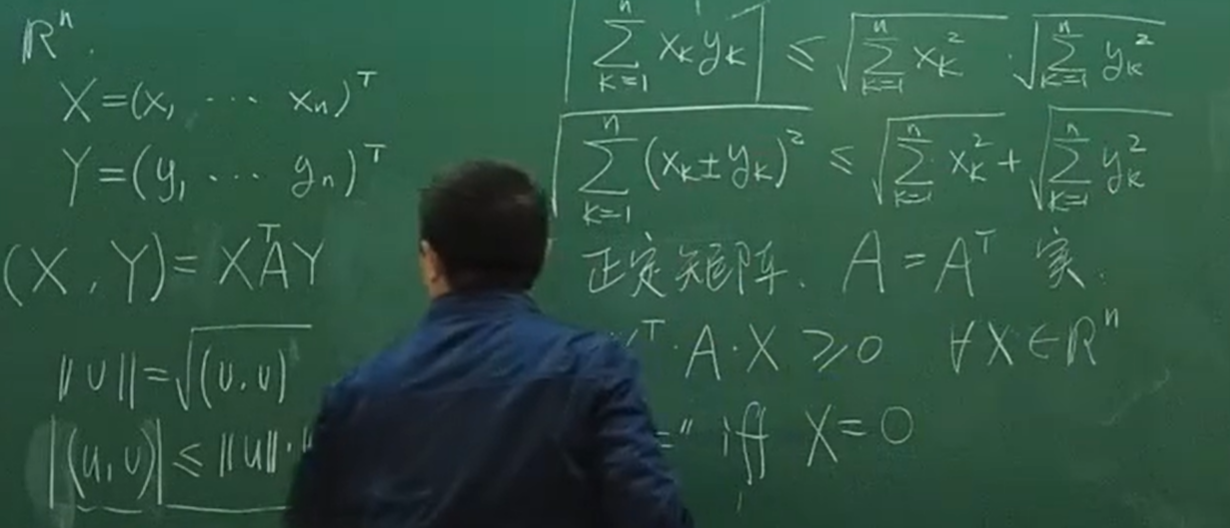 ℝⁿ.
X=(x₁ ⋯ xₙ)ᵀ
Y=(y₁ ⋯ yₙ)ᵀ
(X, Y)=XᵀAY
||U||=√(U.U)
|(u,U)| ≤ ||u||·
|∑ₖ₌₁ⁿ xₖyₖ| ≤ √(∑ₖ₌₁ⁿ xₖ²) · √(∑ₖ₌₁ⁿ yₖ²)
√(∑ₖ₌₁ⁿ (xₖ±yₖ)²) ≤ √(∑ₖ₌₁ⁿ xₖ²) + √(∑ₖ₌₁ⁿ yₖ²)
正定矩阵. A=Aᵀ 实.
ᵀ·A·X ⩾0 ∀X∈ℝⁿ
=" iff X=0